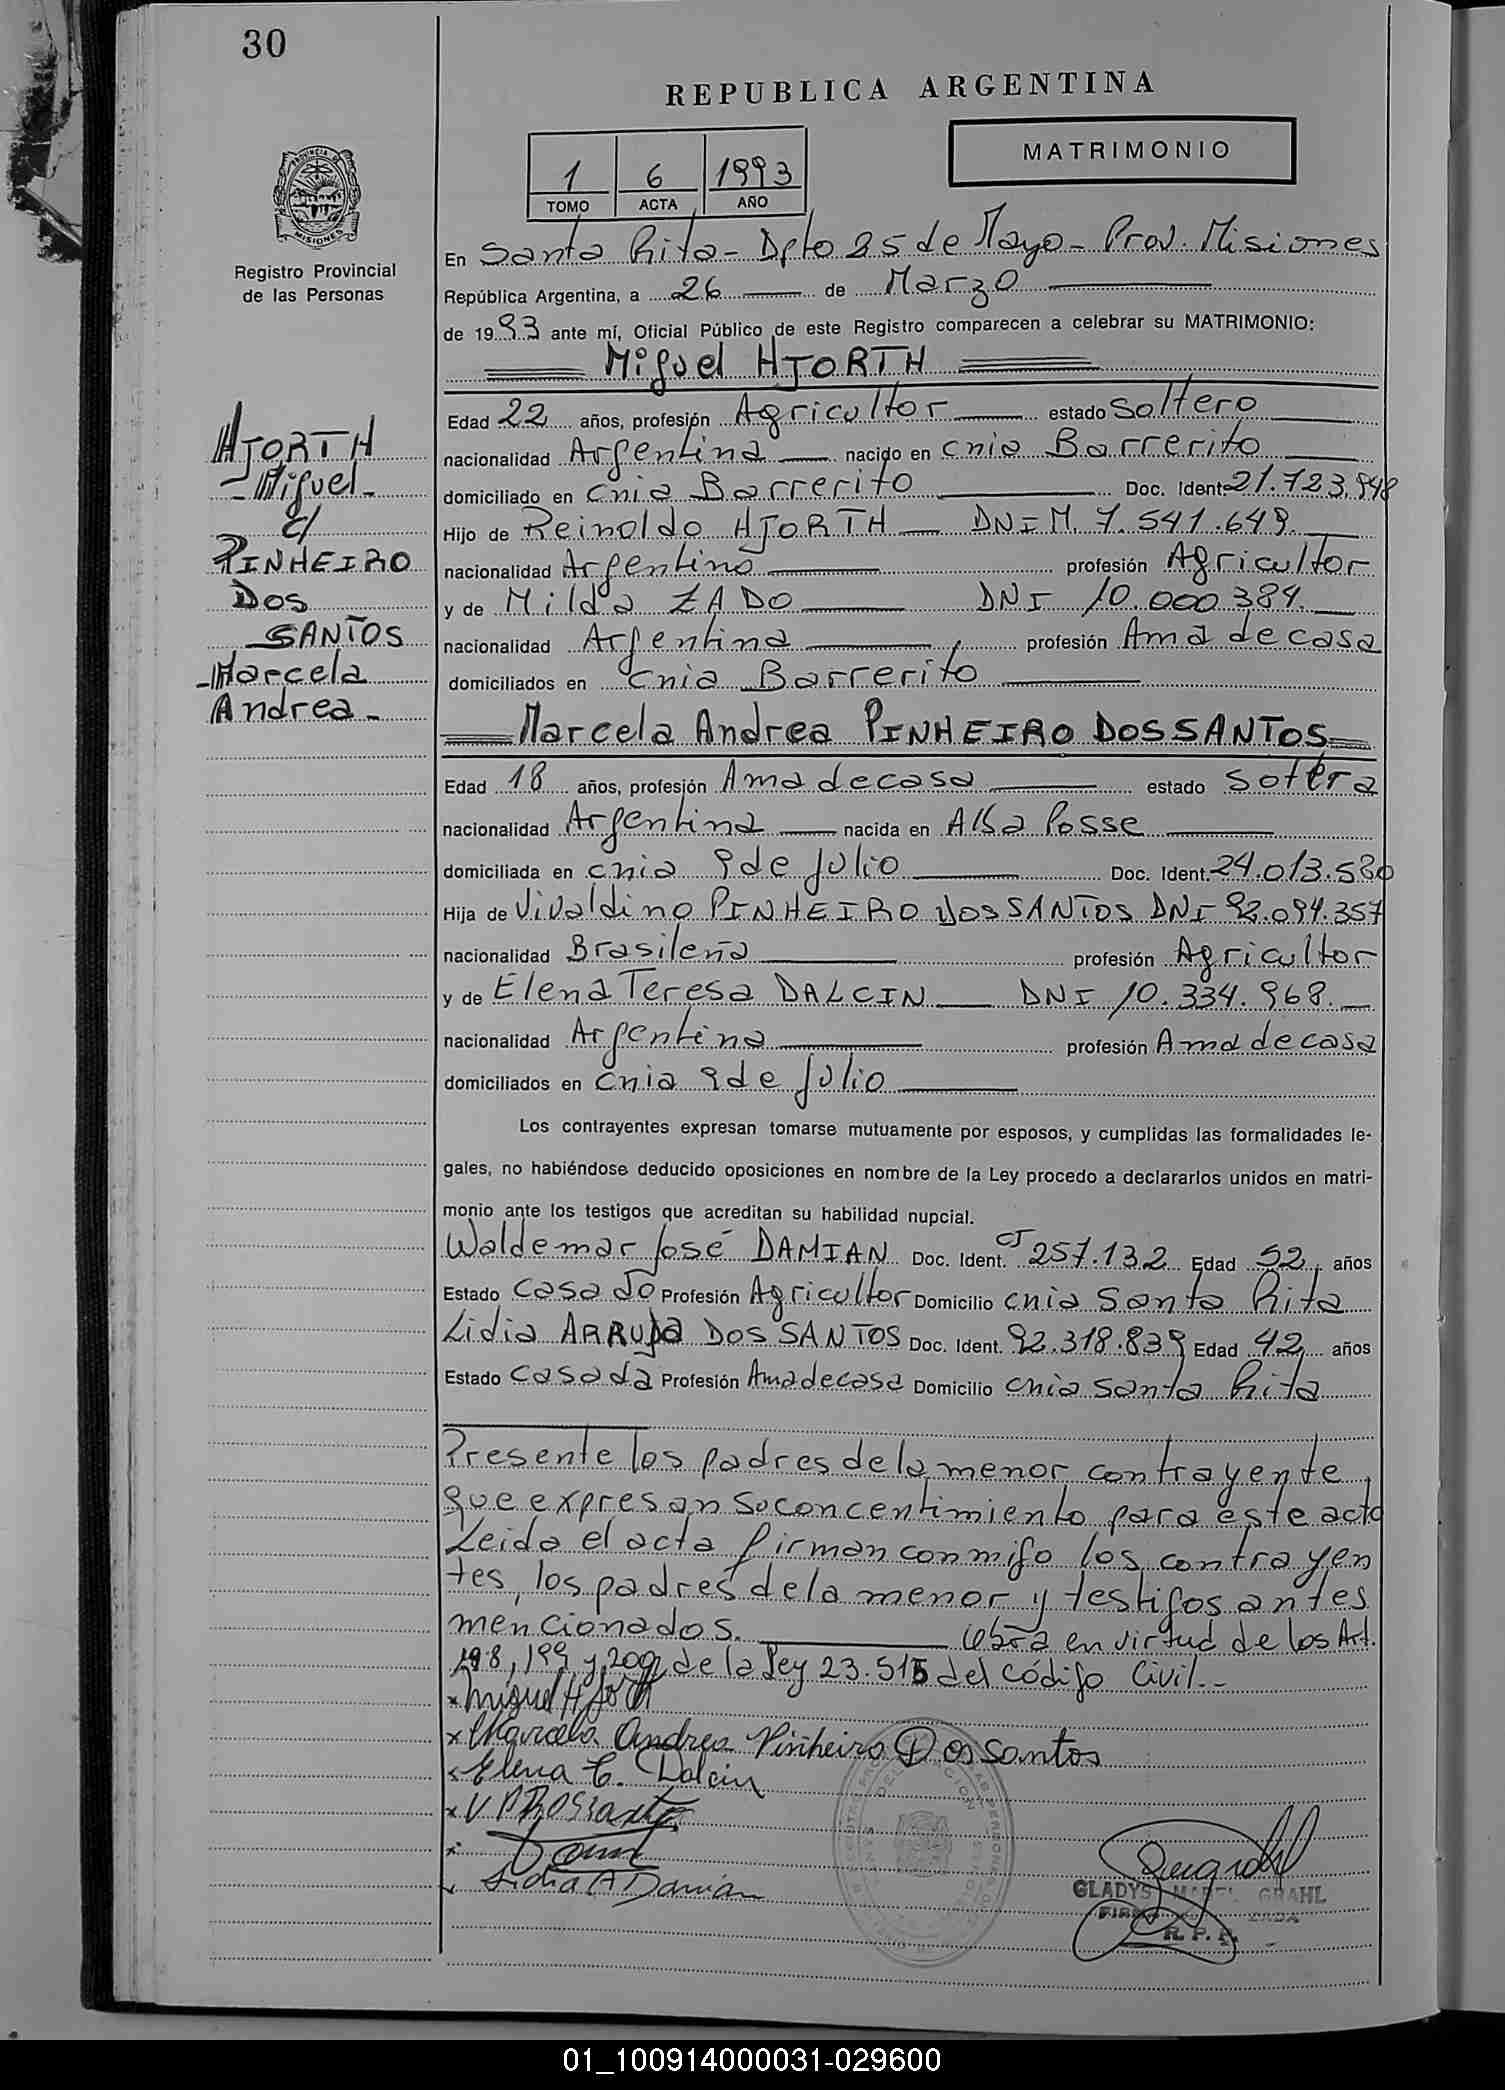 30
REPUBLICA ARGENTINA
MATRIMONIO
1 6 1993
TOMO ACTA AÑO
PROVINCIA DE MISIONES
Registro Provincial
de las Personas
En Santa Rita - Dpto 25 de Mayo - Prov. Misiones
República Argentina, a 26 de Marzo
de 1993 ante mí, Oficial Público de este Registro comparecen a celebrar su MATRIMONIO:
Miguel HJORTH
Edad 22 años, profesión Agricultor estado Soltero
nacionalidad Argentina nacido en Cnia Barrerito
domiciliado en Cnia Barrerito Doc. Ident. 21.723.948
Hijo de Reinoldo HJORTH DNI M. 7.541.649.
nacionalidad Argentina profesión Agricultor
y de Milda ZADO DNI 10.000.384.
nacionalidad Argentina profesión Ama de casa
domiciliados en Cnia Barrerito
HJORTH
- Miguel -
c/
PINHEIRO
DOS
SANTOS
- Marcela
Andrea -
Marcela Andrea PINHEIRO DOS SANTOS
Edad 18 años, profesión Ama de casa estado Soltera
nacionalidad Argentina nacida en Alba Posse
domiciliada en Cnia 9 de Julio Doc. Ident. 24.013.580
Hija de Vivaldino PINHEIRO DOS SANTOS DNI 92.094.357
nacionalidad Brasileña profesión Agricultor
y de Elena Teresa DALCIN DNI 10.334.968.
nacionalidad Argentina profesión Ama de casa
domiciliados en Cnia 9 de Julio
Los contrayentes expresan tomarse mutuamente por esposos, y cumplidas las formalidades le-
gales, no habiéndose deducido oposiciones en nombre de la Ley procedo a declararlos unidos en matri-
monio ante los testigos que acreditan su habilidad nupcial.
Waldemar José DAMIAN Doc. Ident. CI 257.132 Edad 52 años
Estado Casado Profesión Agricultor Domicilio Cnia Santa Rita
Lidia ARRUDA DOS SANTOS Doc. Ident. 92.318.839 Edad 42 años
Estado Casada Profesión Ama de casa Domicilio Cnia Santa Rita
Presente los padres de la menor contrayente,
que expresan su concentimiento para este acto
Leida el acta firman conmigo los contrayen
tes, los padres de la menor y testigos antes
mencionados. Obra en virtud de los Art.
198, 199 y 200 de la Ley 23.515 del Código Civil. -
x Miguel Hjorth
x Marcela Andrea Pinheiro Dos Santos
x Elena T. Dalcin
x V. P. Dos Santos
x
Lidia A Damian
GLADYS MABEL GRAHL
R. P. P.
01_100914000031-029600